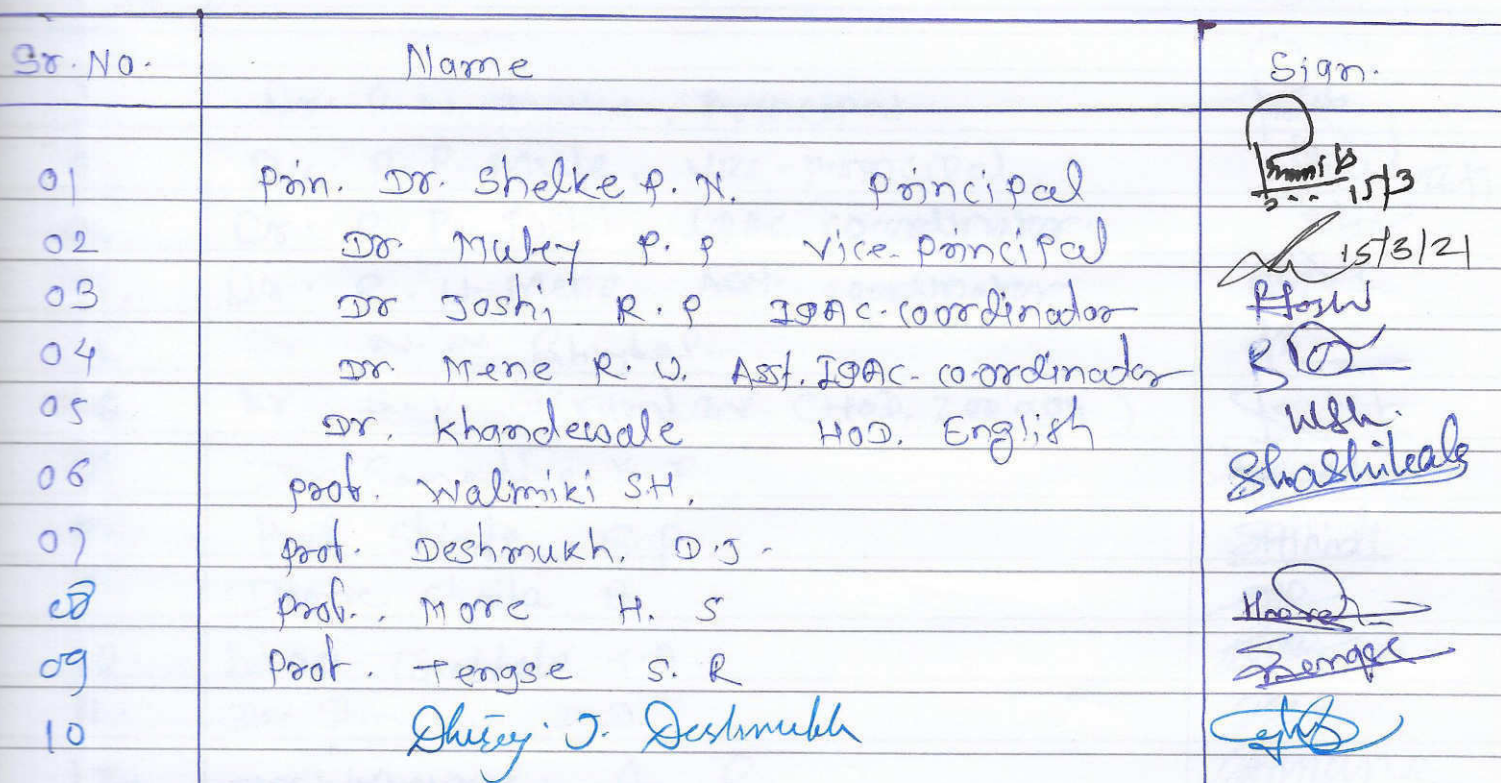 Sr. No. Name Sign.
01 Prin. Dr. Shelke P. N. Principal 15/3
02 Dr Mutey P. P Vice-principal 15/3/21
03 Dr Joshi R. P IQAC-coordinador RJoshi
04 Dr. Mene R. U. Asst. IQAC-co-ordinador
05 Dr. Khandewale HOD. English
06 Prof. Walimiki S.H. Shashikala
07 Prof. Deshmukh. D.J.
08 Prof.. More H. S
09 Prof. Tengse S. R Tengse
10 Dhiraj J. Deshmukh